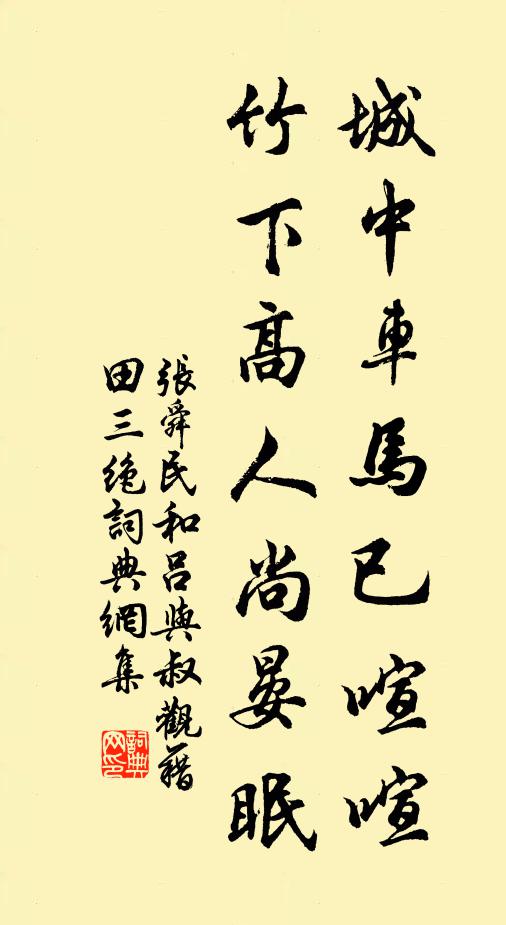 城中車馬已喧喧
竹下高人尚晏眠
張舜民和呂與叔觀藉
田三絶詞典網集
詞典網印